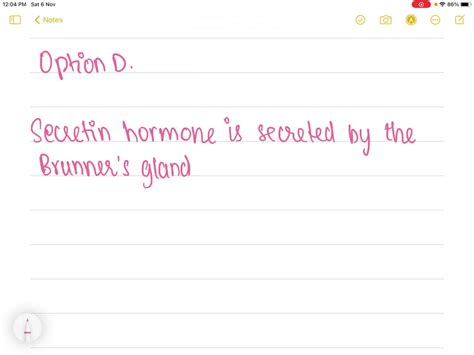 12:04 PM Sat 6 Nov
86%
Notes
Option D.
Secretin hormone is secreted by the
Brunner's gland